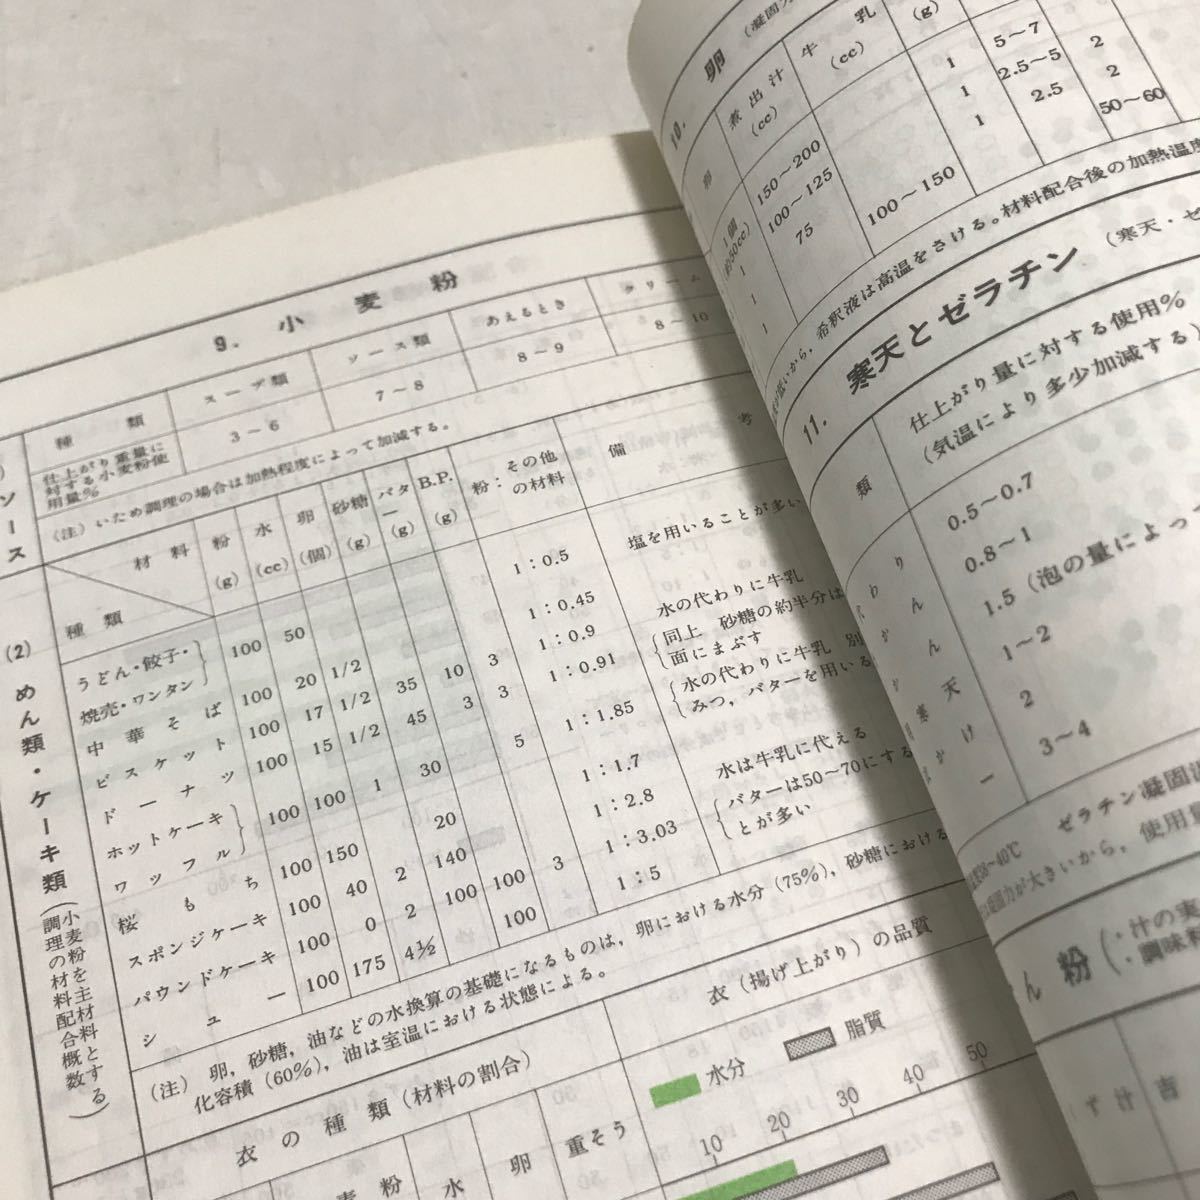 9. 小麦粉
(1) ソース
種類 スープ類 ソース類 あえるとき クリーム
仕上がり重量に
対する小麦粉使
用量%
3～6 7～8 8～9 8～10
(注) いため調理の場合は加熱程度によって加減する。
(2) めん類・ケーキ類 (小麦粉を主材料とする
調理の材料配合概数)
材料 粉 水 卵 砂糖 バター B.P. 粉:その他の材料 備考
種類 (g) (cc) (個) (g) (g) (g)
うどん・餃子・
焼売・ワンタン
100 50 1:0.5 塩を用いることが多い
中華そば 100 20 1/2 1:0.45
ビスケット 100 17 1/2 35 10 3 1:0.9 水の代わりに牛乳
ドーナツ 100 15 1/2 45 3 3 1:0.91 同上 砂糖の約半分は
面にまぶす
ホットケーキ
ワッフル
100 100 1 30 5 1:1.85 水の代わりに牛乳 別
みつ,バターを用いる
桜もち 100 150 20 1:1.7
スポンジケーキ 100 40 2 140 1:2.8 水は牛乳に代える
パウンドケーキ 100 0 2 100 100 3 1:3.03 バターは50～70にする
とが多い
シュー 100 175 4½ 100 1:5
(注) 卵,砂糖,油などの水換算の基礎になるものは,卵における水分(75%),砂糖における
化容積(60%),油は室温における状態による。
衣の種類(材料の割合) 衣(揚げ上がり)の品質
水分 脂質
麦粉 水 卵 重そう
10 20 30 40 50
10. 卵
煮出汁
(cc)
牛乳
(cc)
(g)
1個
(約50cc) 150～200 1 5～7 2
1 100～125 1 2.5～5 2
1 75 1 2.5 50～60
1 100～150
希釈液は高温をさける。材料配合後の加熱温度
11. 寒天とゼラチン (寒天・ゼ
類 仕上がり量に対する使用%
(気温により多少加減する)
0.5～0.7
0.8～1
1.5 (泡の量によっ
1～2
2
3～4
ゼラチン凝固温
力が大きいから,使用量
ん粉 (・汁の実
・調味料